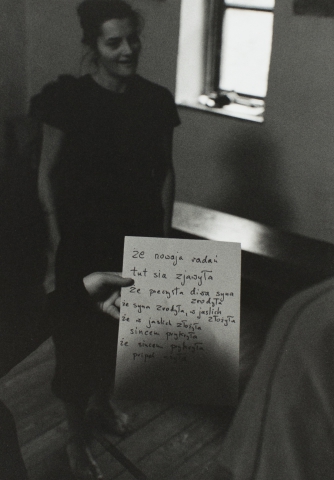 że nowaja radań
tut sia zjawyła
że preczysta diwa syna
zrodyła
że syna zrodyła, w jaslich
złożyła
że w jaslich złożyła
sincem prykryła
że sincem prykryła